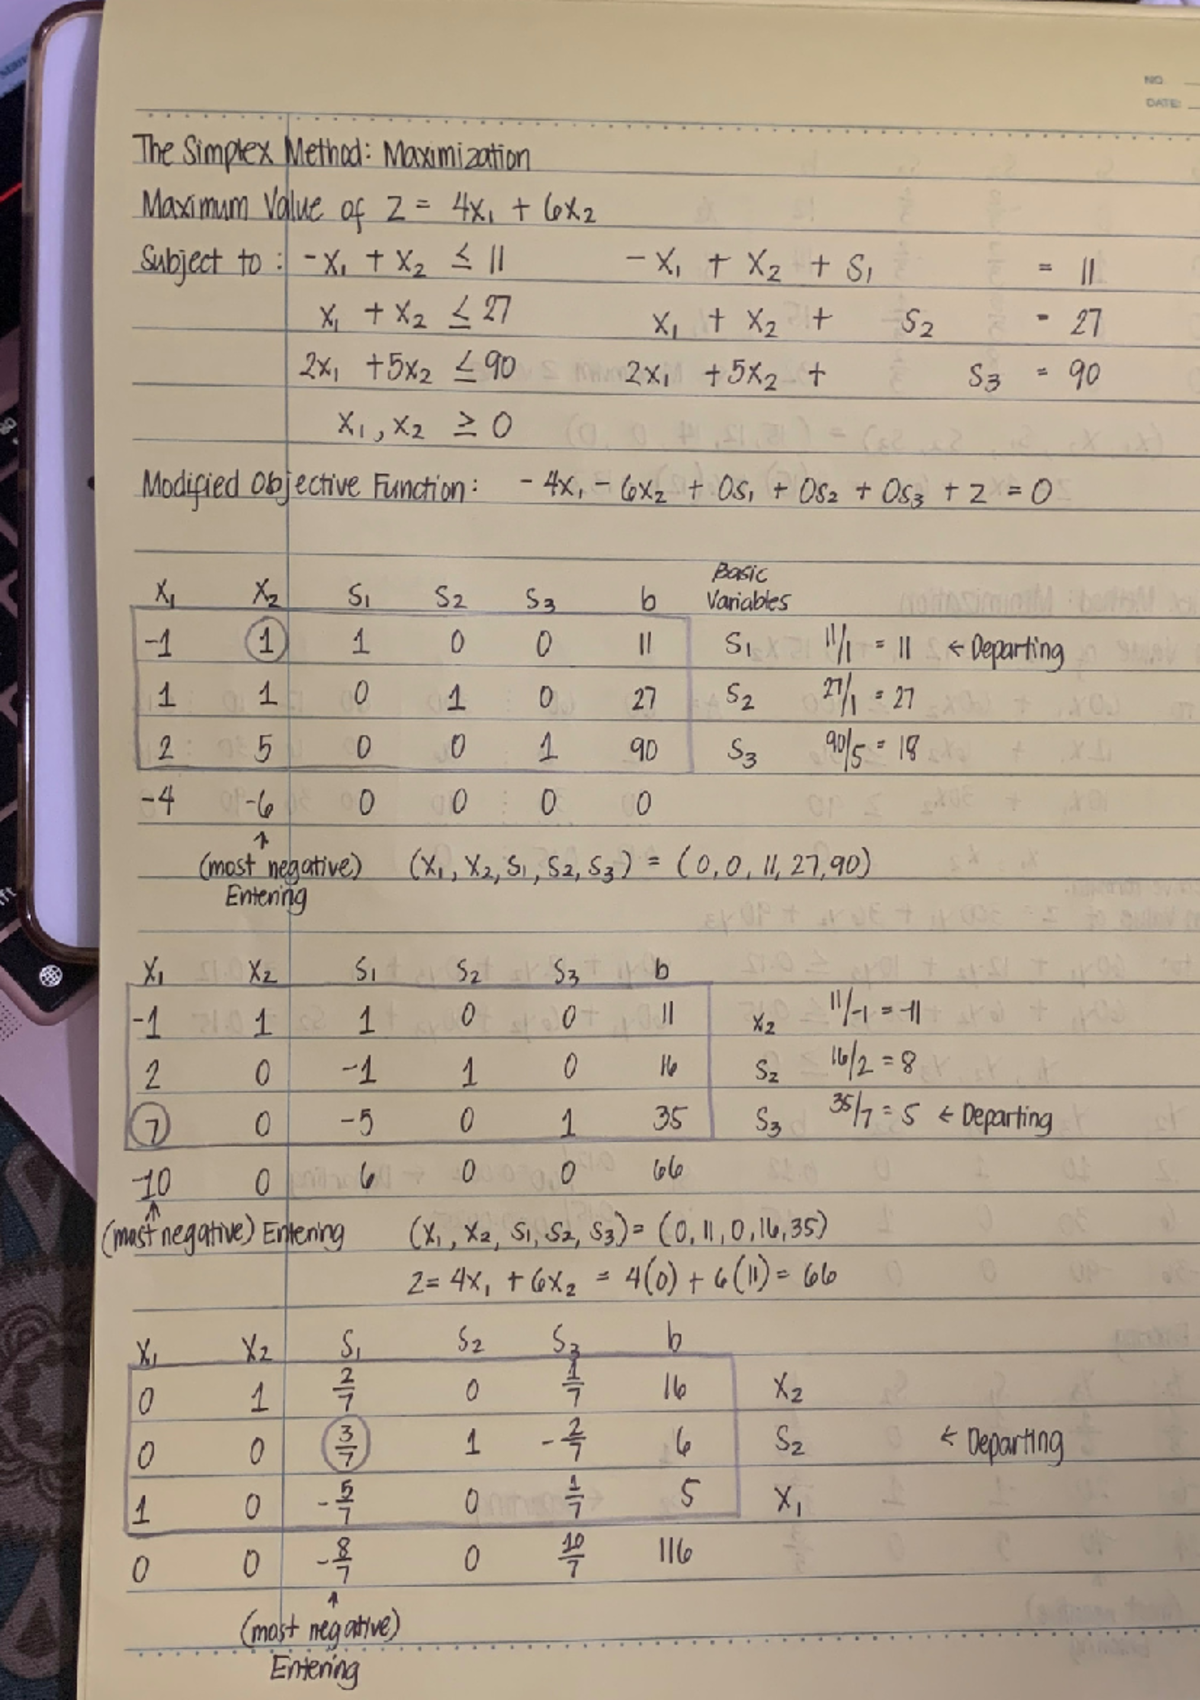 NO.
DATE:
The Simplex Method: Maximization
Maximum Value of Z = 4x₁ + 6x₂
Subject to: -x₁ + x₂ ≤ 11 -x₁ + x₂ + s₁ = 11
x₁ + x₂ ≤ 27 x₁ + x₂ + s₂ = 27
2x₁ + 5x₂ ≤ 90 2x₁ + 5x₂ + s₃ = 90
x₁, x₂ ≥ 0
Modified Objective Function: -4x₁ - 6x₂ + 0s₁ + 0s₂ + 0s₃ + z = 0
Basic
x₁ x₂ s₁ s₂ s₃ b Variables
-1 1 1 0 0 11 s₁ 11/1 = 11 ← Departing
1 1 0 1 0 27 s₂ 27/1 = 27
2 5 0 0 1 90 s₃ 90/5 = 18
-4 -6 0 0 0 0
↑
(most negative) (x₁, x₂, s₁, s₂, s₃) = (0, 0, 11, 27, 90)
Entering
x₁ x₂ s₁ s₂ s₃ b
-1 1 1 0 0 11 x₂ 11/-1 = -11
2 0 -1 1 0 16 s₂ 16/2 = 8
7 0 -5 0 1 35 s₃ 35/7 = 5 ← Departing
-10 0 6 0 0 66
↑
(most negative) Entering (x₁, x₂, s₁, s₂, s₃) = (0, 11, 0, 16, 35)
z = 4x₁ + 6x₂ = 4(0) + 6(11) = 66
x₁ x₂ s₁ s₂ s₃ b
0 1 2/7 0 1/7 16 x₂
0 0 3/7 1 -2/7 6 s₂ ← Departing
1 0 -5/7 0 1/7 5 x₁
0 0 -8/7 0 10/7 116
↑
(most negative)
Entering